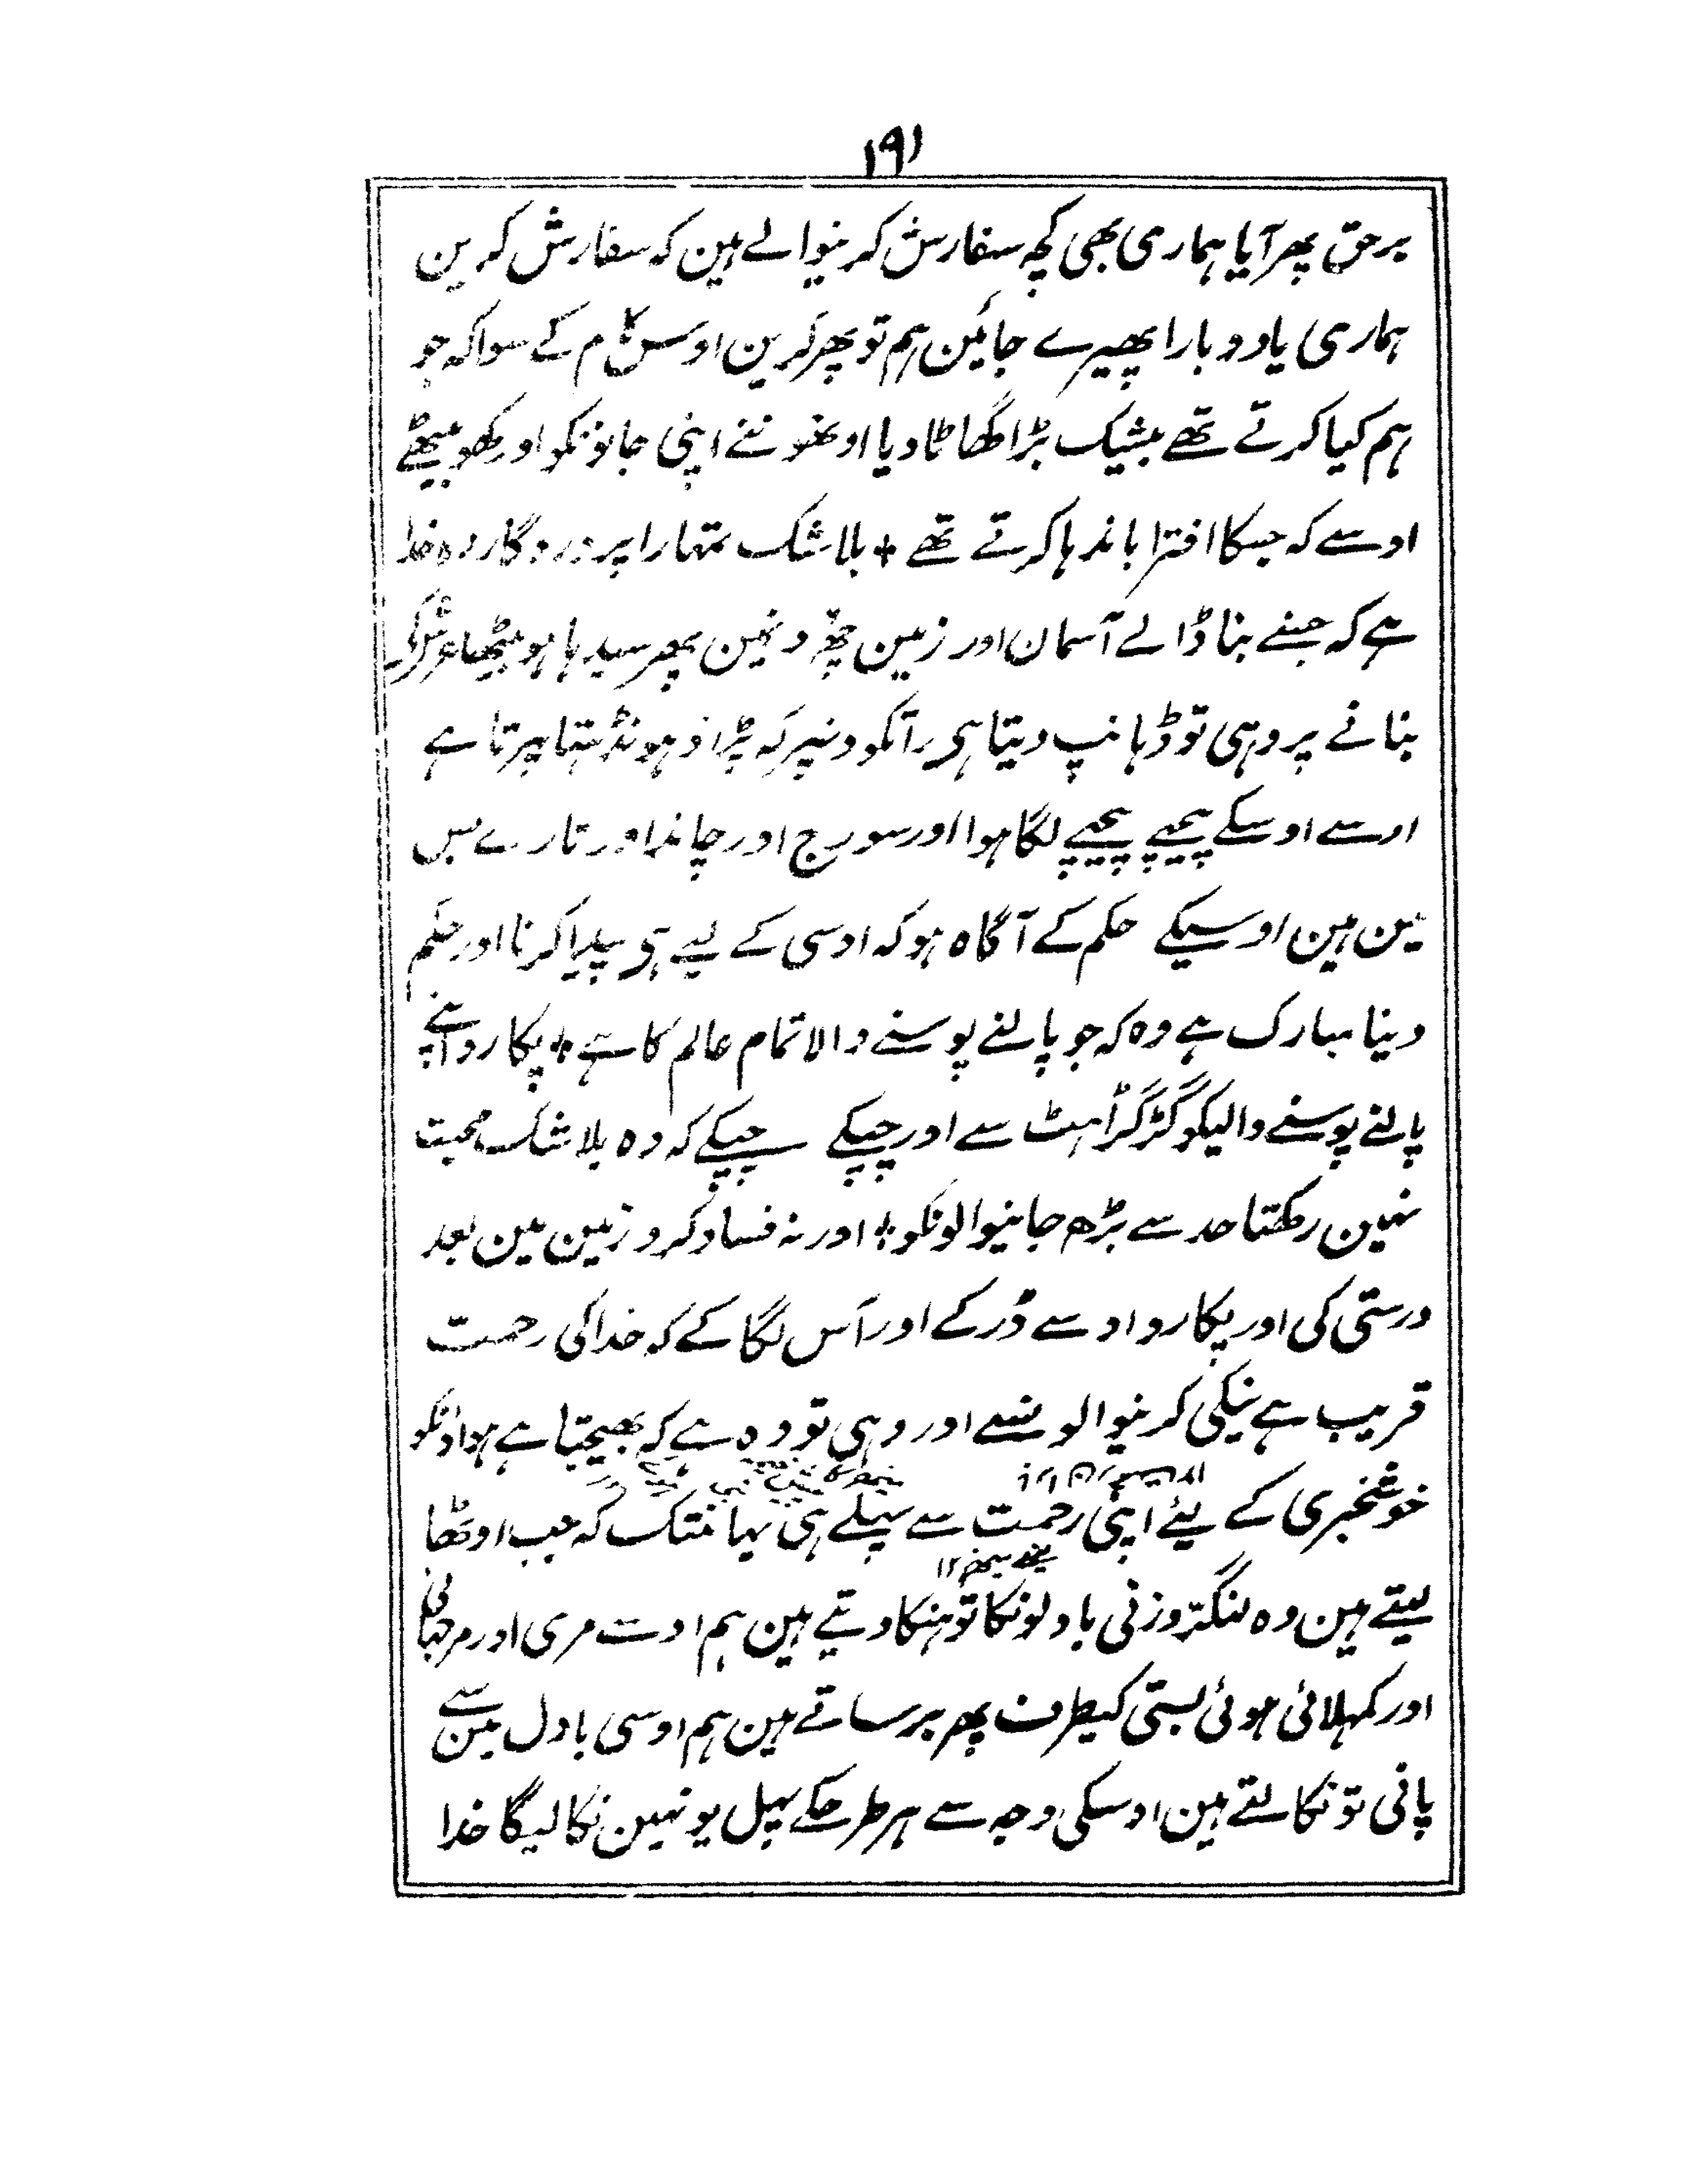 ۱۹۱
برحق پھر آیا ہماری بھی کچہ سفارش کرنیوالے ہین کہ سفارش کرین
ہماری یا دوبارا پھیرے جائین ہم تو پھر کرین اوس کام کے سوا کہ جو
ہم کیا کرتے تھے بیشک بڑا گھاٹا دیا اونھونے اپنی جانونکو اور کھو بیٹھے
اوسے کہ جسکا افترا باندہا کرتے تھے + بلاشک تمہارا پروردگار وہ خدا
ہے کہ جسنے بنا ڈالے آسمان اور زمین چھہ دنمین پھر سیدہا ہو بیٹھا عرش کی
بنانے پر وہی تو ڈہانپ دیتا ہی راتکو دنپر کہ پڑا ڈہونڈہتا پہرتا ہے
اوسے اوسکے پیچھے پیچھے لگا ہوا اور سورج اور چاند اور تارے بس
مین ہین اوسیکے حکم کے آگاہ ہو کہ اوسی کے لیے ہی پیدا کرنا اور حکم
دینا مبارک ہے وہ کہ جو پالنے پوسنے والا تمام عالم کا ہے + پکارو اپنے
پالنے پوسنے والیکو گڑگڑاہٹ سے اور چپکے چپکے کہ وہ بلاشک محبت
نہین رکھتا حد سے بڑھ جانیوالونکو + اور نہ فساد کرو زمین مین بعد
درستی کی اور پکارو اوسے ڈر کے اور آس لگا کے کہ خدا کی رحمت
قریب ہے نیکی کرنیوالونسے اور وہی تو وہ ہے کہ بھیجتا ہے ہواونکو
خوشخبری کے لیئے اپنی رحمت سے پہلے ہی یہانتک کہ جب اوٹھا
لیتے ہین وہ لنگر وزنی بادلونکا تو ہنکا دیتے ہین ہم اوت مری اور مرجہائی
اور کمہلائی ہوئی بستی کیطرف پھر برساتے ہین ہم اوسی بادل مین سے
پانی تو نکالتے ہین اوسکی وجہ سے ہر طرحکے پہل یونہین نکالیگا خدا